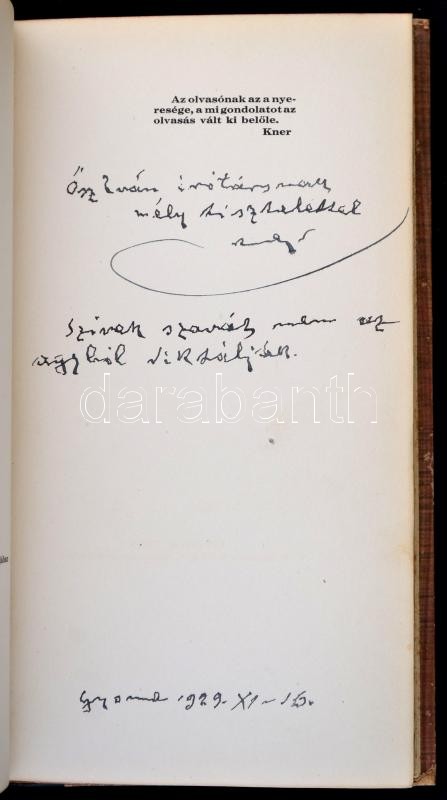 Az olvasónak az a nye-
resége, a mi gondolatot az
olvasás vált ki belőle.
Kner
Ősz Iván írótársnak
mély tisztelettel
Szivek szavát nem az
agyból diktálják.
darabanth
Gyoma 1929. XI-15.